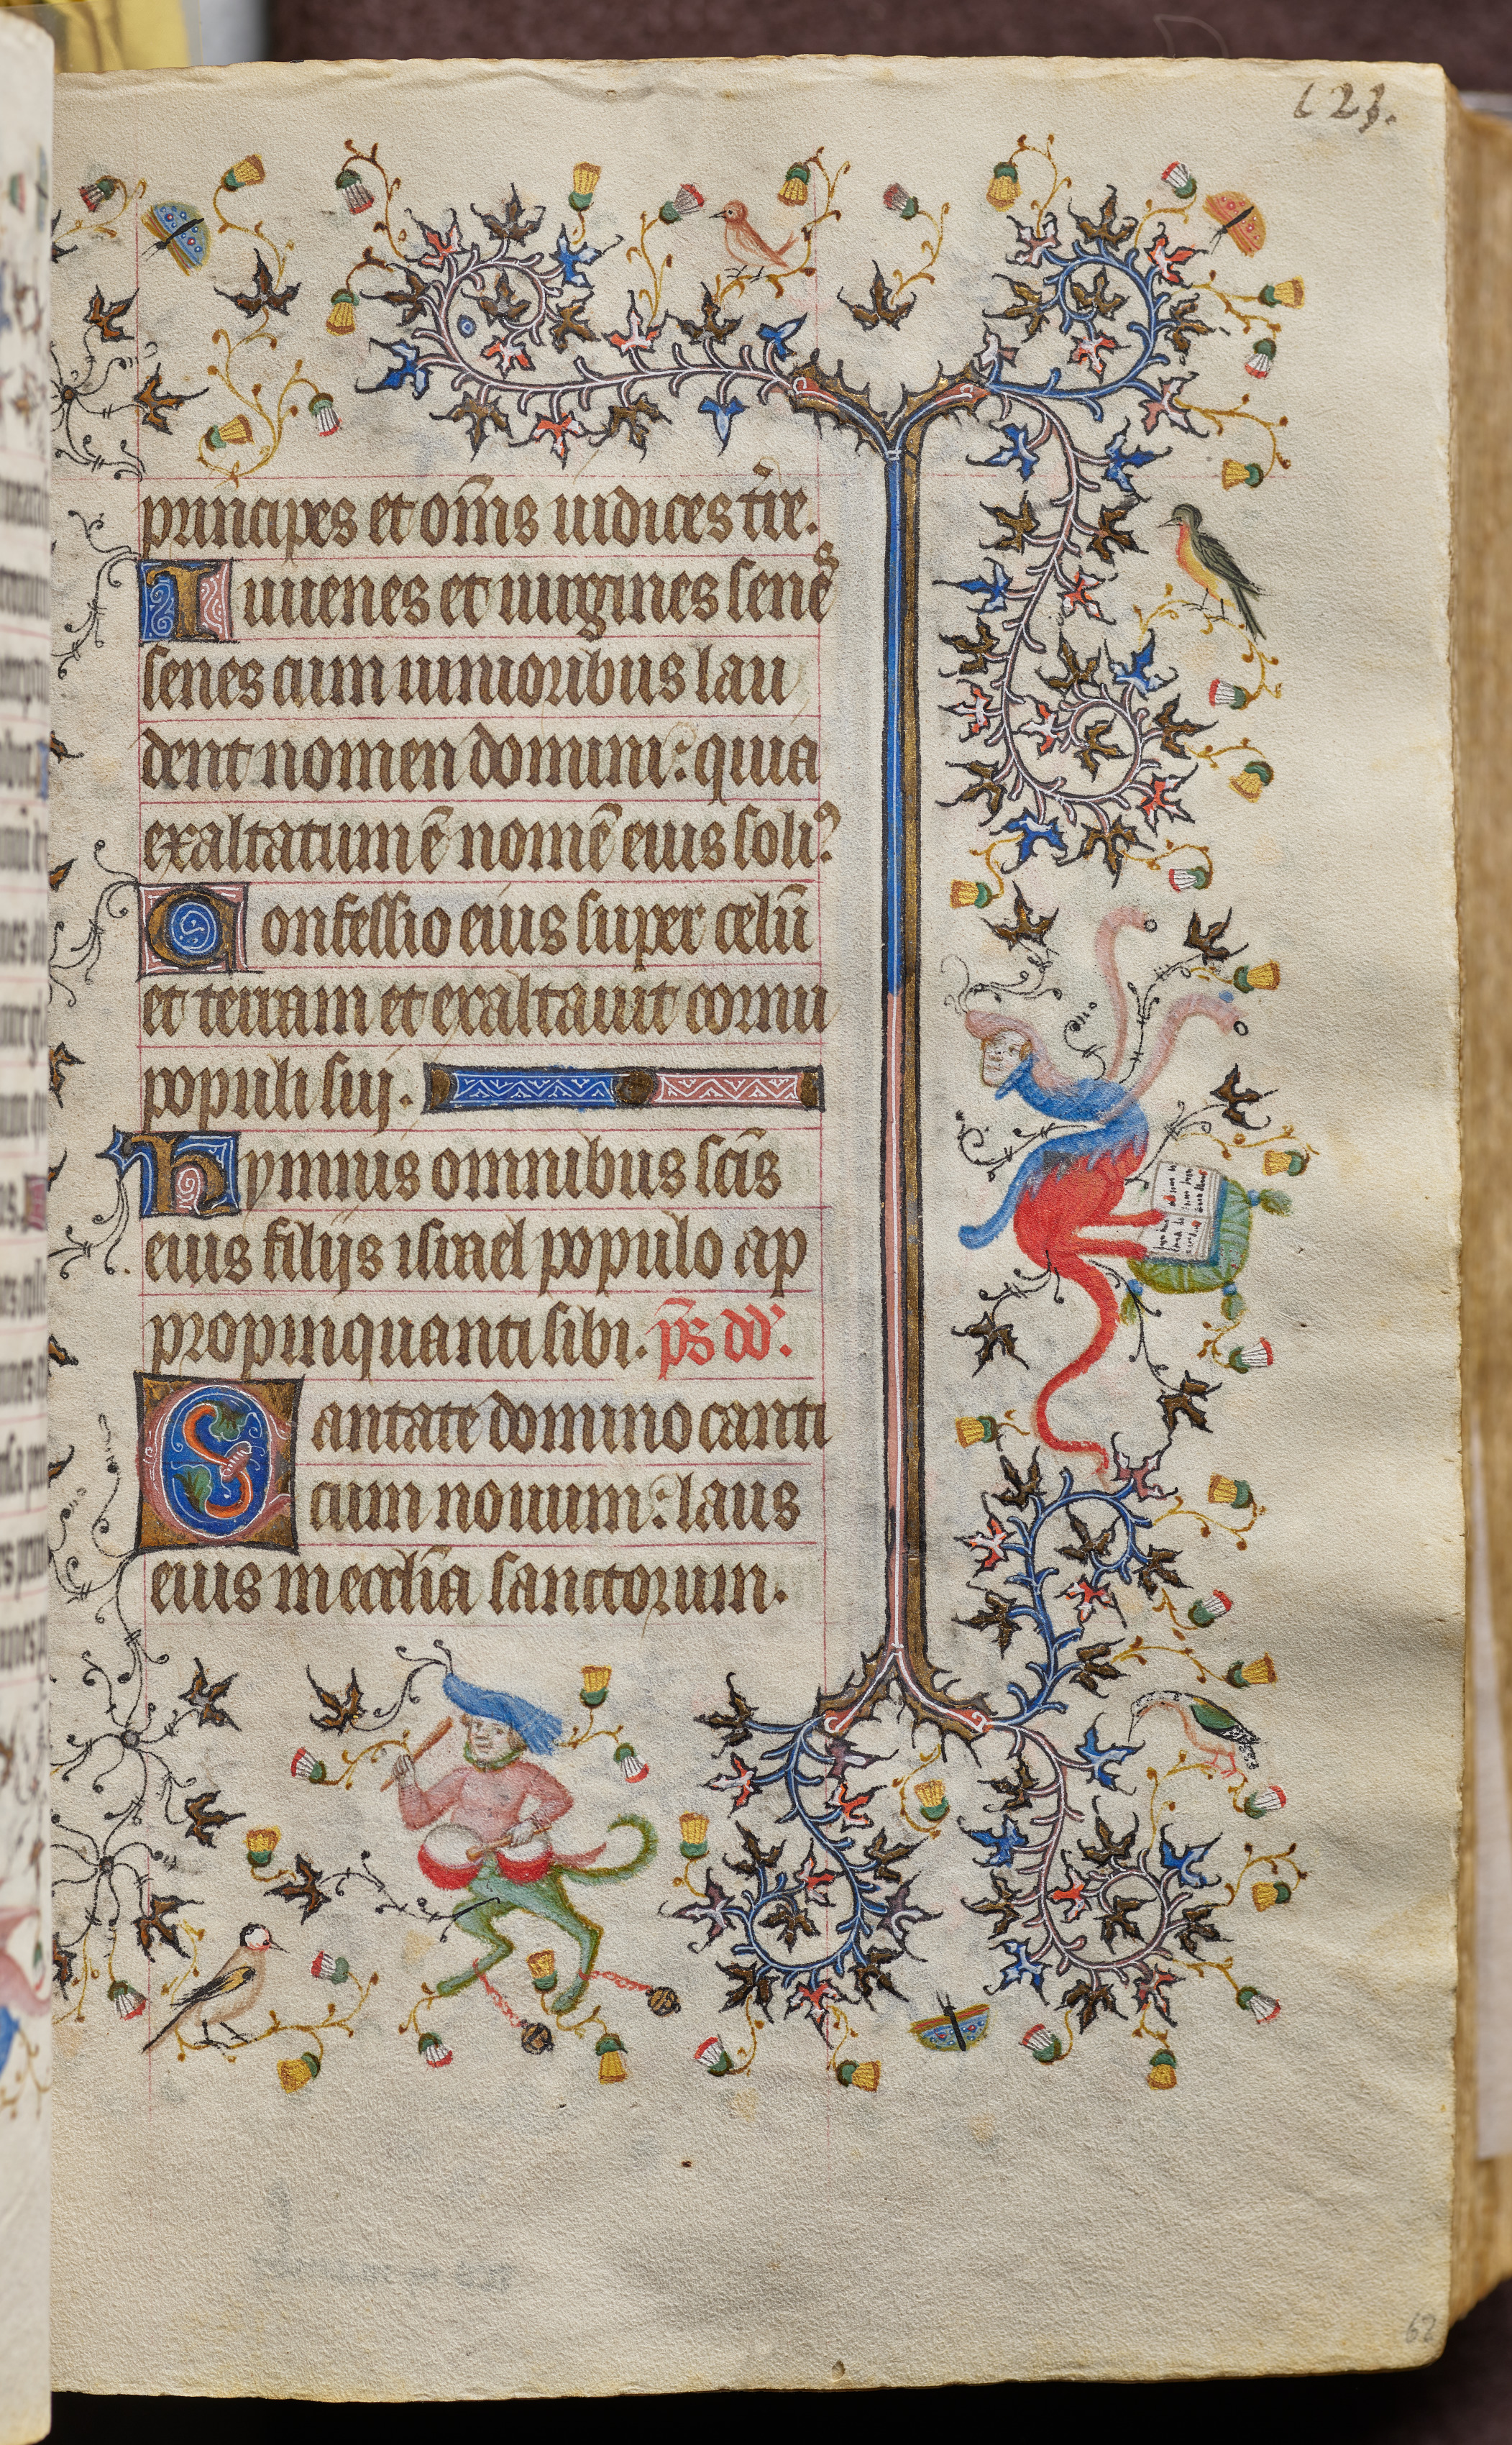 123.
principes et om̄s iudices t̄re.
Iuuenes et uirgines senes
senes cum iunioribus lau
dent nomen domini: quia
exaltatum ē nomē eius soliꝰ
Confessio eius super celū
et terram et exaltauit cornu
populi sui.
Hymnus omnibus sc̄is
eius filijs israel populo ap
propinquanti sibi. p̄s dd.
Cantate domino canti
cum nouum: laus
eius in eccl̄ia sanctorum.
62